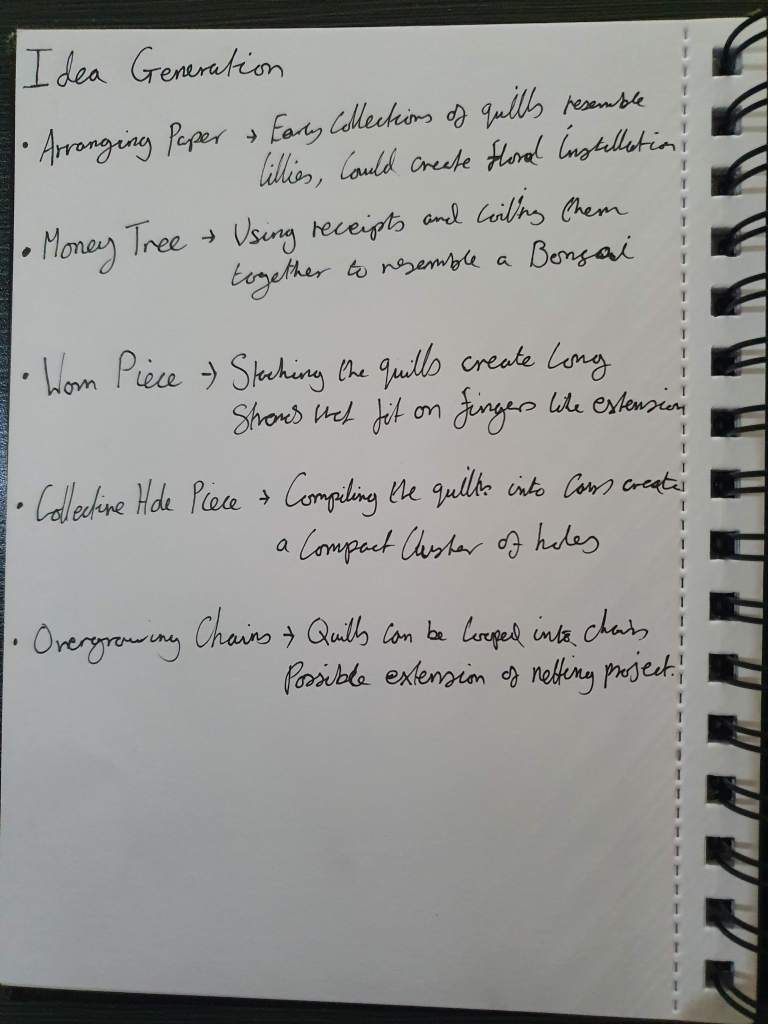 Idea Generation
• Arranging Paper → Early Collections of quills resemble
lillies, Could create floral installation
• Money Tree → Using receipts and coiling them
together to resemble a Bonsai
• Worn Piece → Stacking the quills create long
that fit on fingers like extension
• Collective Hole Piece → Compiling the quills into create
a Compact Cluster of holes
• Overgrowing Chains → Quills can be looped into chains
Possible extension of netting project.